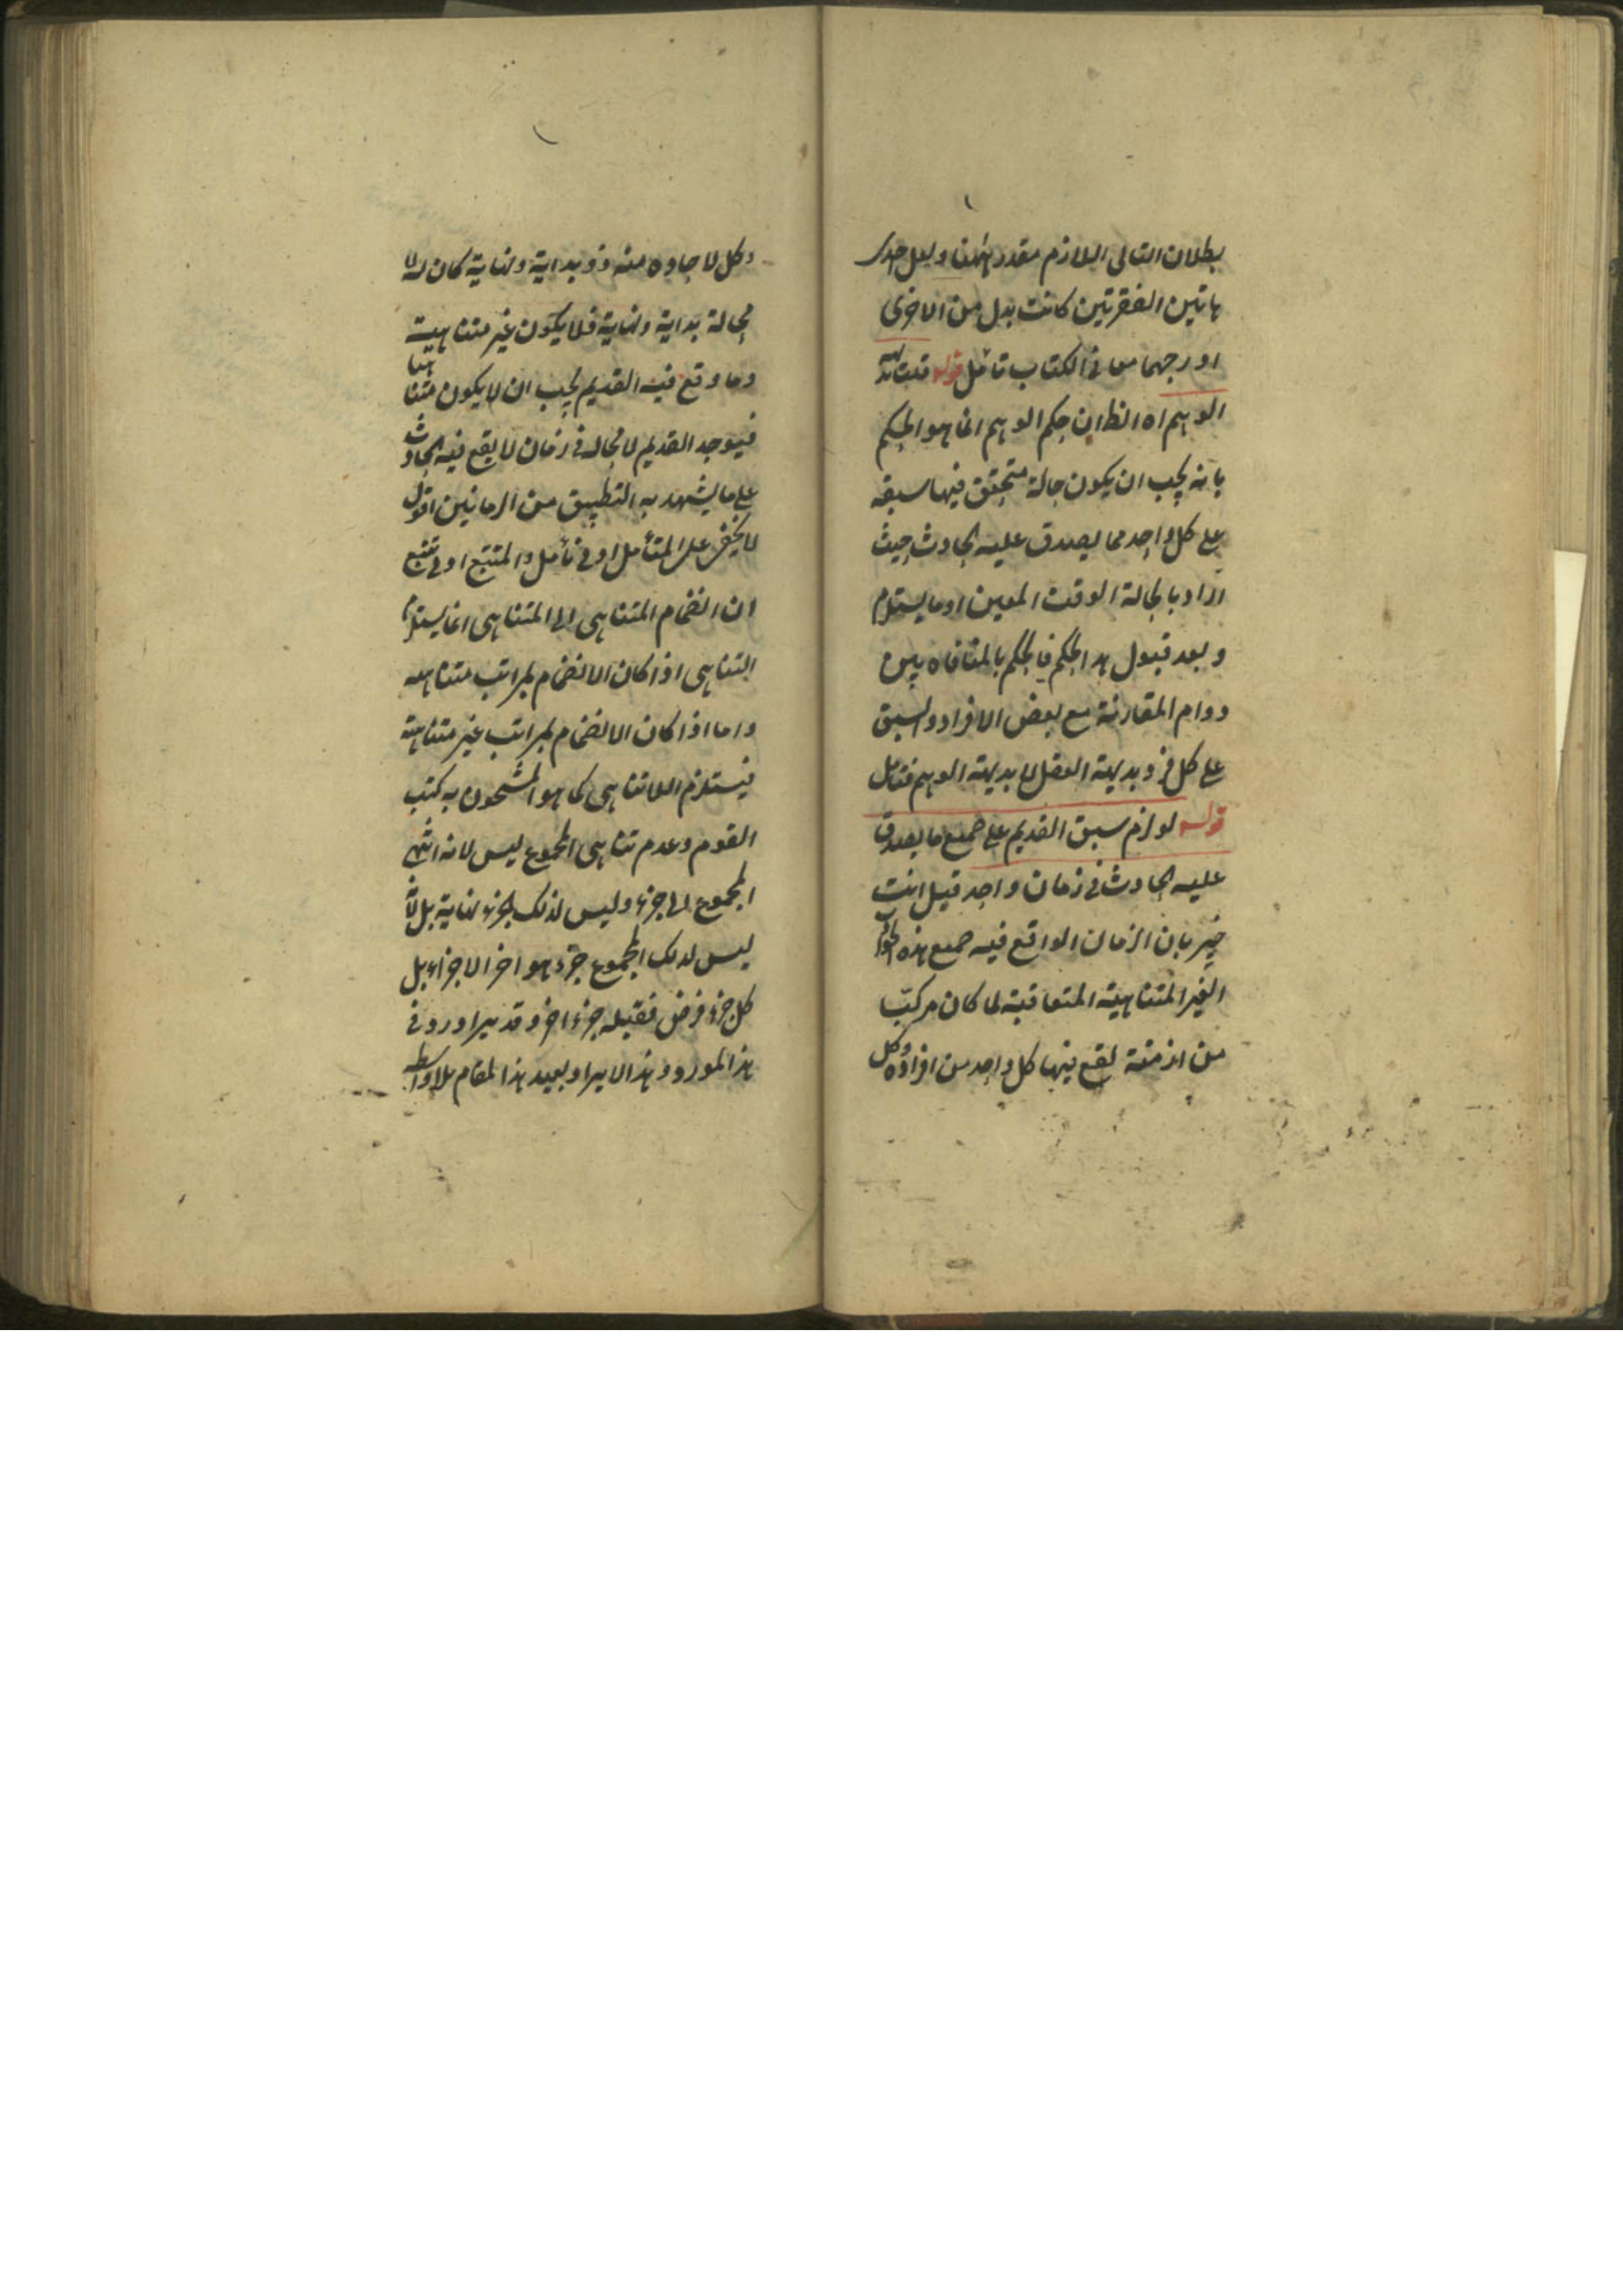 بطلان التالى اللازم مقدر ههنا ولعل احدى
هاتين الفقرتين كانت بدل من الاخرى
اورجهما معا فى الكتاب تأمل قوله قلت هذه
الوهم اه الظ ان حكم الوهم انما هو الحكم
بانه يجب ان يكون حالة متحقق فيها سبقه
على كل واحد مما يصدق عليه الحادث حيث
اراد بالحالة الوقت المعين او ما يستلزم
وبعد قبول هذا الحكم فالحكم بالمنافاه بين
دوام المقارنة مع بعض الافراد والسبق
على كل فرد بديهة العقل لا بديهة الوهم فتأمل
قوله لو لزم سبق القديم على جميع ما يصدق
عليه الحادث فى زمان واحد قيل انت
خبير بان الزمان الواقع فيه جميع هذه الحوادث
الغير المتناهية المتعاقبة لما كان مركبا
من ازمنة يقع فيها كل واحد من افراده وكل
وكل لا حاوه منه ذو بداية ونهاية كان له لا
محالة بداية ونهاية فلا يكون غير متناهية
وما وقع فيه القديم يجب ان لا يكون متناهيا
فيوجد القديم لا محالة فى زمان لا يقع فيه الحادث
على ما يشهد به التطبيق من الزمانين اقول
لا يخفى على المتأمل اوفى تأمل والمتتبع اوفى تتبع
ان انضمام المتناهى الى المتناهى انما يستلزم
التناهى اذا كان الانضمام بمراتب متناهيه
واما اذا كان الانضمام بمراتب غير متناهية
فيستلزم اللاتناهى كما هو المشحون به كتب
القوم وعدم تناهى المجموع ليس لانه انتهى
المجموع الى جزء وليس لذلك الجزء نهاية بل لانه
ليس لذلك المجموع جزء هو اخر الاجزاء بل
كل جزء فرض فقبله جزء اخر وقد يراد ورود فى
هذا المورد وهذا الايراد بعيد هذا المقام بلا واسطه